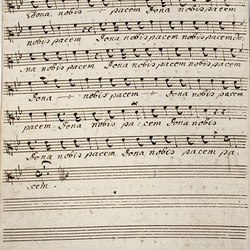 dona nobis pacem Dona nobis pacem
nobis pacem Dona nobis pacem nobis pacem do,
,na nobis pacem Dona nobis pacem
Dona nobis pacem Dona nobis
pacem Dona nobis pa: cem Dona nobis
Dona nobis pacem Dona nobis pacem pa
cem.